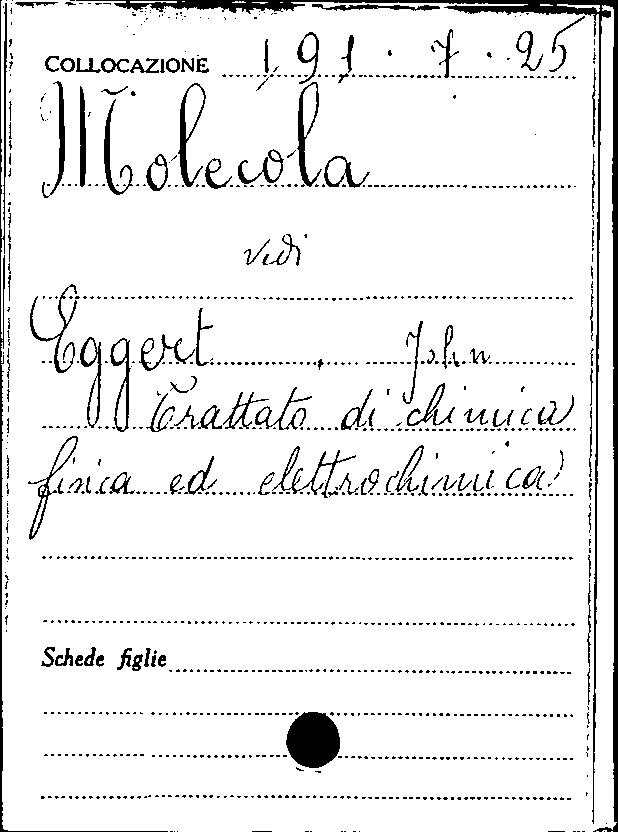 COLLOCAZIONE 191.7.25
Molecola
vedi
Eggert, John
Trattato di chimica
fisica ed elettrochimica
Schede figlie